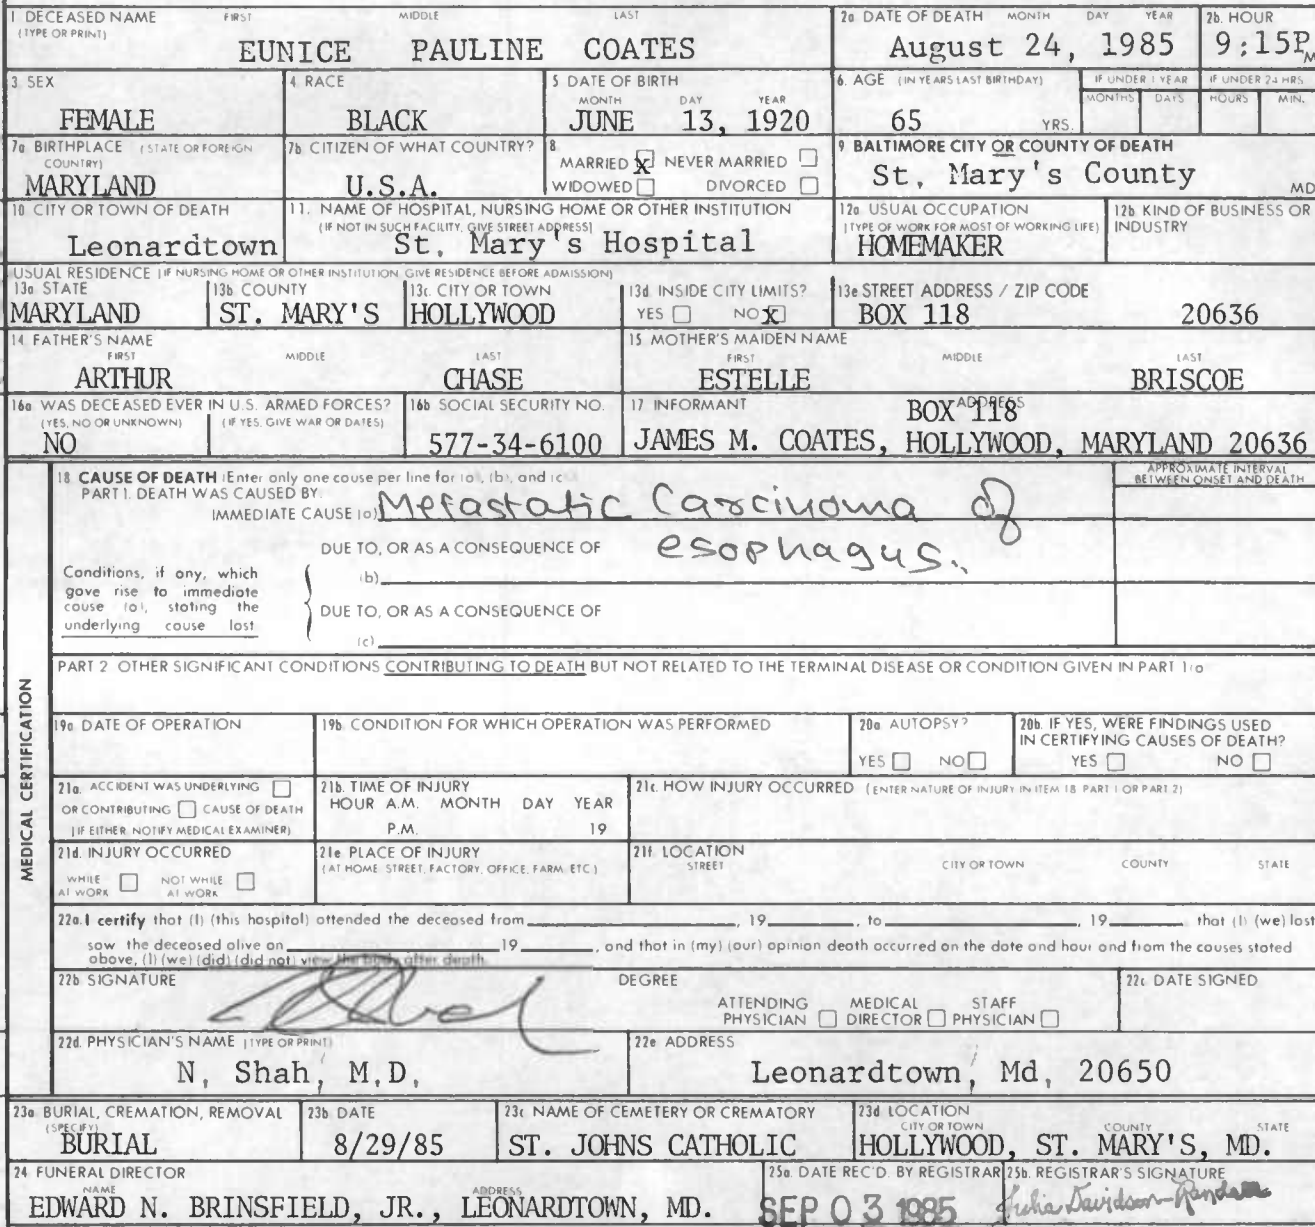 1 DECEASED NAME FIRST MIDDLE LAST
(TYPE OR PRINT)
EUNICE PAULINE COATES
2a DATE OF DEATH MONTH DAY YEAR
August 24, 1985
2b. HOUR
9:15P M
3 SEX
FEMALE
4 RACE
BLACK
5 DATE OF BIRTH
MONTH DAY YEAR
JUNE 13, 1920
6. AGE (IN YEARS LAST BIRTHDAY)
65 YRS.
IF UNDER 1 YEAR
MONTHS DAYS
IF UNDER 24 HRS
HOURS MIN.
7a BIRTHPLACE (STATE OR FOREIGN
COUNTRY)
MARYLAND
7b CITIZEN OF WHAT COUNTRY?
U.S.A.
8
MARRIED X NEVER MARRIED
WIDOWED DIVORCED
9 BALTIMORE CITY OR COUNTY OF DEATH
St. Mary's County MD
10 CITY OR TOWN OF DEATH
Leonardtown
11. NAME OF HOSPITAL, NURSING HOME OR OTHER INSTITUTION
(IF NOT IN SUCH FACILITY, GIVE STREET ADDRESS)
St. Mary's Hospital
12a USUAL OCCUPATION
(TYPE OF WORK FOR MOST OF WORKING LIFE)
HOMEMAKER
12b KIND OF BUSINESS OR
INDUSTRY
USUAL RESIDENCE (IF NURSING HOME OR OTHER INSTITUTION GIVE RESIDENCE BEFORE ADMISSION)
13a. STATE
MARYLAND
13b COUNTY
ST. MARY'S
13c. CITY OR TOWN
HOLLYWOOD
13d. INSIDE CITY LIMITS?
YES NO X
13e STREET ADDRESS / ZIP CODE
BOX 118 20636
14. FATHER'S NAME
FIRST MIDDLE LAST
ARTHUR CHASE
15 MOTHER'S MAIDEN NAME
FIRST MIDDLE LAST
ESTELLE BRISCOE
16a WAS DECEASED EVER IN U.S. ARMED FORCES?
(YES, NO OR UNKNOWN) (IF YES, GIVE WAR OR DATES)
NO
16b SOCIAL SECURITY NO.
577-34-6100
17 INFORMANT ADDRESS
BOX 118
JAMES M. COATES, HOLLYWOOD, MARYLAND 20636
MEDICAL CERTIFICATION
18 CAUSE OF DEATH (Enter only one cause per line for (a), (b), and (c)
PART I. DEATH WAS CAUSED BY:
IMMEDIATE CAUSE (a) Metastatic Carcinoma of
esophagus.
APPROXIMATE INTERVAL
BETWEEN ONSET AND DEATH
DUE TO, OR AS A CONSEQUENCE OF
(b)
Conditions, if any, which
gave rise to immediate
cause (a), stating the
underlying cause last
DUE TO, OR AS A CONSEQUENCE OF
(c)
PART 2 OTHER SIGNIFICANT CONDITIONS CONTRIBUTING TO DEATH BUT NOT RELATED TO THE TERMINAL DISEASE OR CONDITION GIVEN IN PART 1(a
19a DATE OF OPERATION
19b. CONDITION FOR WHICH OPERATION WAS PERFORMED
20a AUTOPSY?
YES NO
20b. IF YES, WERE FINDINGS USED
IN CERTIFYING CAUSES OF DEATH?
YES NO
21a. ACCIDENT WAS UNDERLYING
OR CONTRIBUTING CAUSE OF DEATH
(IF EITHER NOTIFY MEDICAL EXAMINER)
21b. TIME OF INJURY
HOUR A.M. MONTH DAY YEAR
P.M. 19
21c. HOW INJURY OCCURRED (ENTER NATURE OF INJURY IN ITEM 18 PART 1 OR PART 2)
21d. INJURY OCCURRED
WHILE AT WORK NOT WHILE AT WORK
21e PLACE OF INJURY
(AT HOME, STREET, FACTORY, OFFICE, FARM, ETC.)
21f. LOCATION
STREET CITY OR TOWN COUNTY STATE
22a. I certify that (I) (this hospital) attended the deceased from , 19 , to , 19 that (I) (we) last
saw the deceased alive on 19 , and that in (my) (our) opinion death occurred on the date and hour and from the causes stated
above, (I) (we) (did) (did not) view the body after death.
22b SIGNATURE
DEGREE
ATTENDING PHYSICIAN MEDICAL DIRECTOR STAFF PHYSICIAN
22c DATE SIGNED
22d. PHYSICIAN'S NAME (TYPE OR PRINT)
N. Shah, M.D.
22e ADDRESS
Leonardtown, Md. 20650
23a BURIAL, CREMATION, REMOVAL
(SPECIFY)
BURIAL
23b DATE
8/29/85
23c NAME OF CEMETERY OR CREMATORY
ST. JOHNS CATHOLIC
23d LOCATION
CITY OR TOWN COUNTY STATE
HOLLYWOOD, ST. MARY'S, MD.
24 FUNERAL DIRECTOR
NAME ADDRESS
EDWARD N. BRINSFIELD, JR., LEONARDTOWN, MD.
25a. DATE REC'D. BY REGISTRAR
SEP 03 1985
25b. REGISTRAR'S SIGNATURE
Julia Davidson-Randall